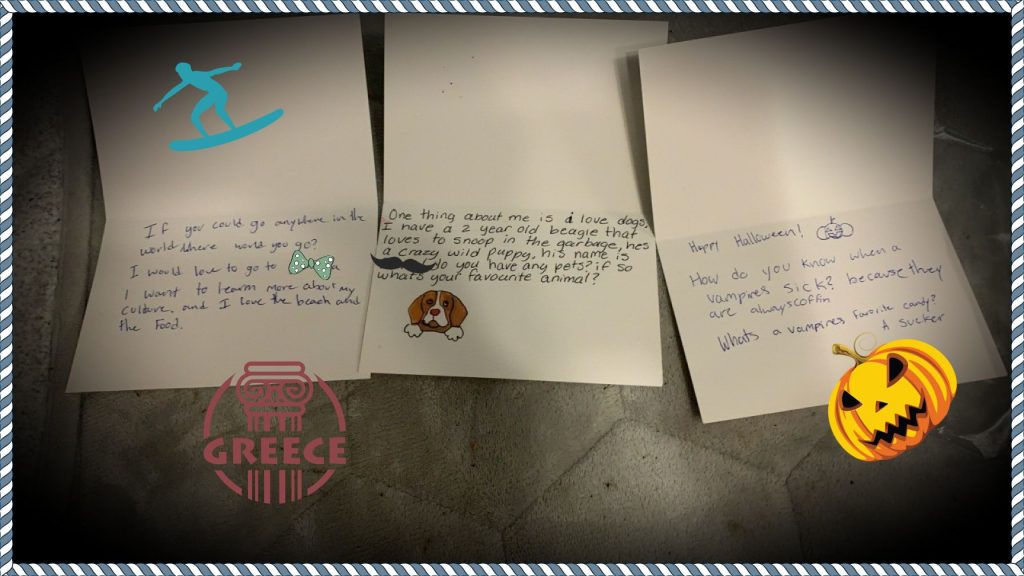 If you could go anywhere in the
world where would you go?
I would love to go to
I want to learn more about my
culture, and I love the beach and
the food.
GREECE
One thing about me is i love dogs,
I have a 2 year old beagle that
loves to snoop in the garbage, hes
a crazy wild puppy, his name is
do you have any pets? if so
what's your favourite animal?
Happy Halloween!
How do you know when a
vampires sick? because they
are always coffin
Whats a vampires favorite candy?
A sucker